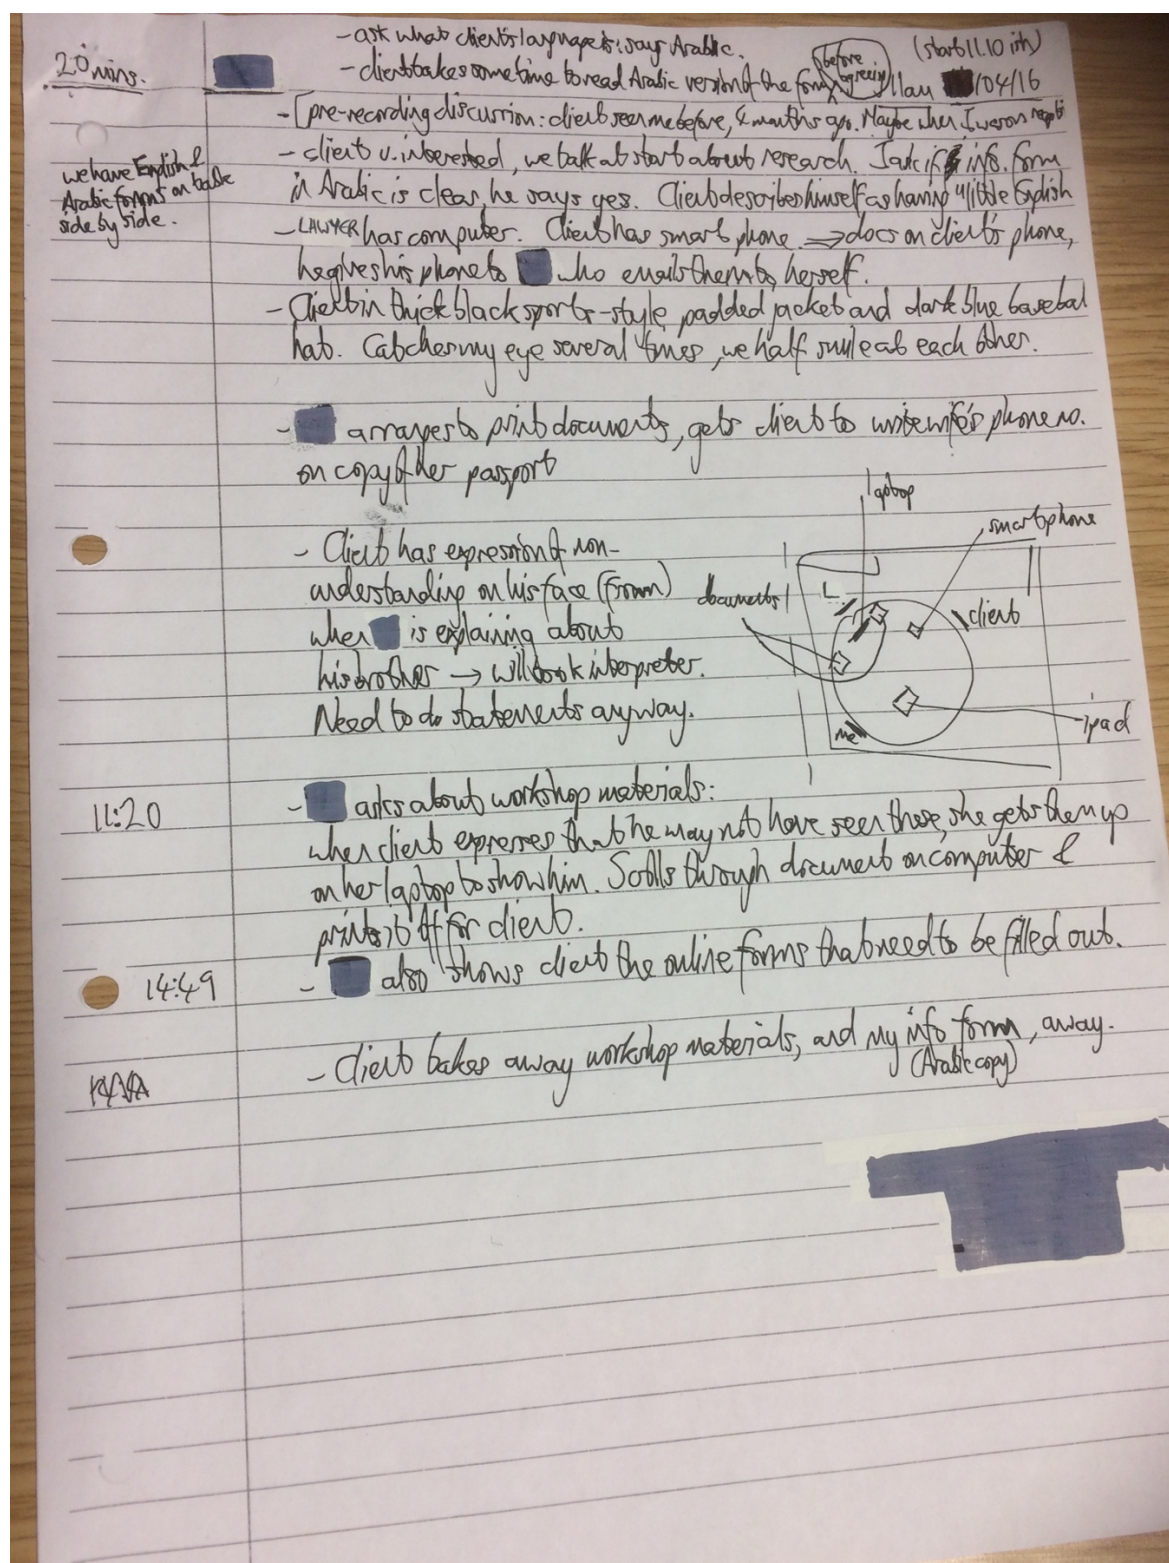 - ask what client's language is: says Arabic.
(start 11.10 ish)
20 mins.
- client takes some time to read Arabic version of the form
before agreeing
11am /04/16
- [pre-recording discussion: client seen me before, 4 months ago. Maybe when I was on
- client v. interested, we talk at start about research. I ask if info. form
in Arabic is clear, he says yes. Client describes himself as having "little English
we have English &
Arabic forms on table
side by side.
- LAWYER has computer. Client has smart phone. → docs on client's phone,
he gives his phone to who emails them to herself.
- Client in thick black sports-style padded jacket and dark blue basebal
hat. Catches my eye several times, we half smile at each other.
- arranges to print documents, gets client to write wife's phone no.
on copy of her passport
- Client has expression of non-
understanding on his face (frown)
when is explaining about
his brother → will book interpreter.
Need to do statements anyway.
laptop
smartphone
documents
L
client
me
ipad
11:20
- asks about workshop materials:
when client expresses that he may not have seen these, she gets them up
on her laptop to show him. Scrolls through document on computer &
prints it off for client.
14:49
- also shows client the online forms that need to be filled out.
- Client takes away workshop materials, and my info form, away.
(Arabic copy)